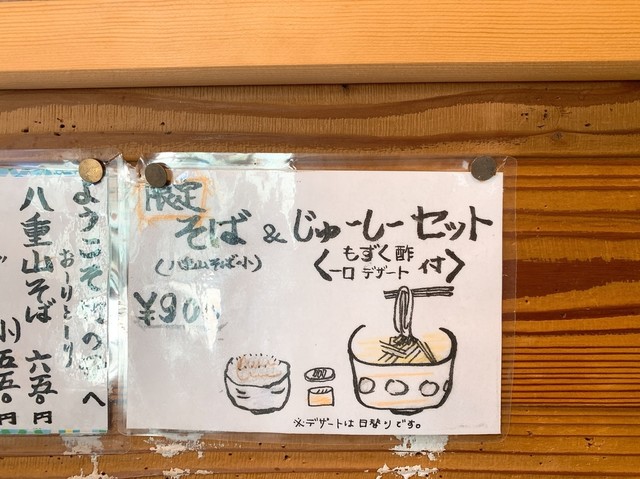 ようこそ
へ
おーりとーり
八重山そば 六五〇円
小 五五〇円
限定
そば & じゅーしーセット
(八重山そば・小)
もずく酢
一口 デザート 付
¥90
※デザートは日替りです。